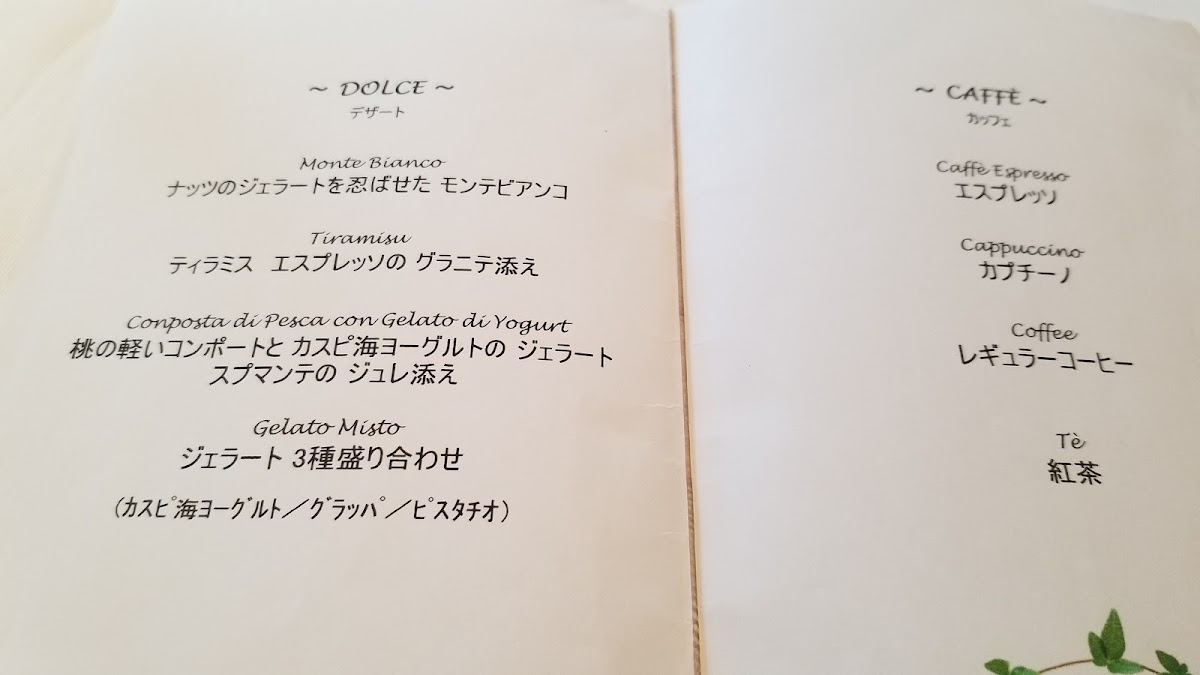 ~ DOLCE ~
デザート
Monte Bianco
ナッツのジェラートを忍ばせた モンテビアンコ
Tiramisu
ティラミス エスプレッソの グラニテ添え
Conposta di Pesca con Gelato di Yogurt
桃の軽いコンポートと カスピ海ヨーグルトの ジェラート
スプマンテの ジュレ添え
Gelato Misto
ジェラート 3種盛り合わせ
(カスピ海ヨーグルト／グラッパ／ピスタチオ)
~ CAFFÈ ~
カッフェ
Caffè Espresso
エスプレッソ
Cappuccino
カプチーノ
Coffee
レギュラーコーヒー
Tè
紅茶